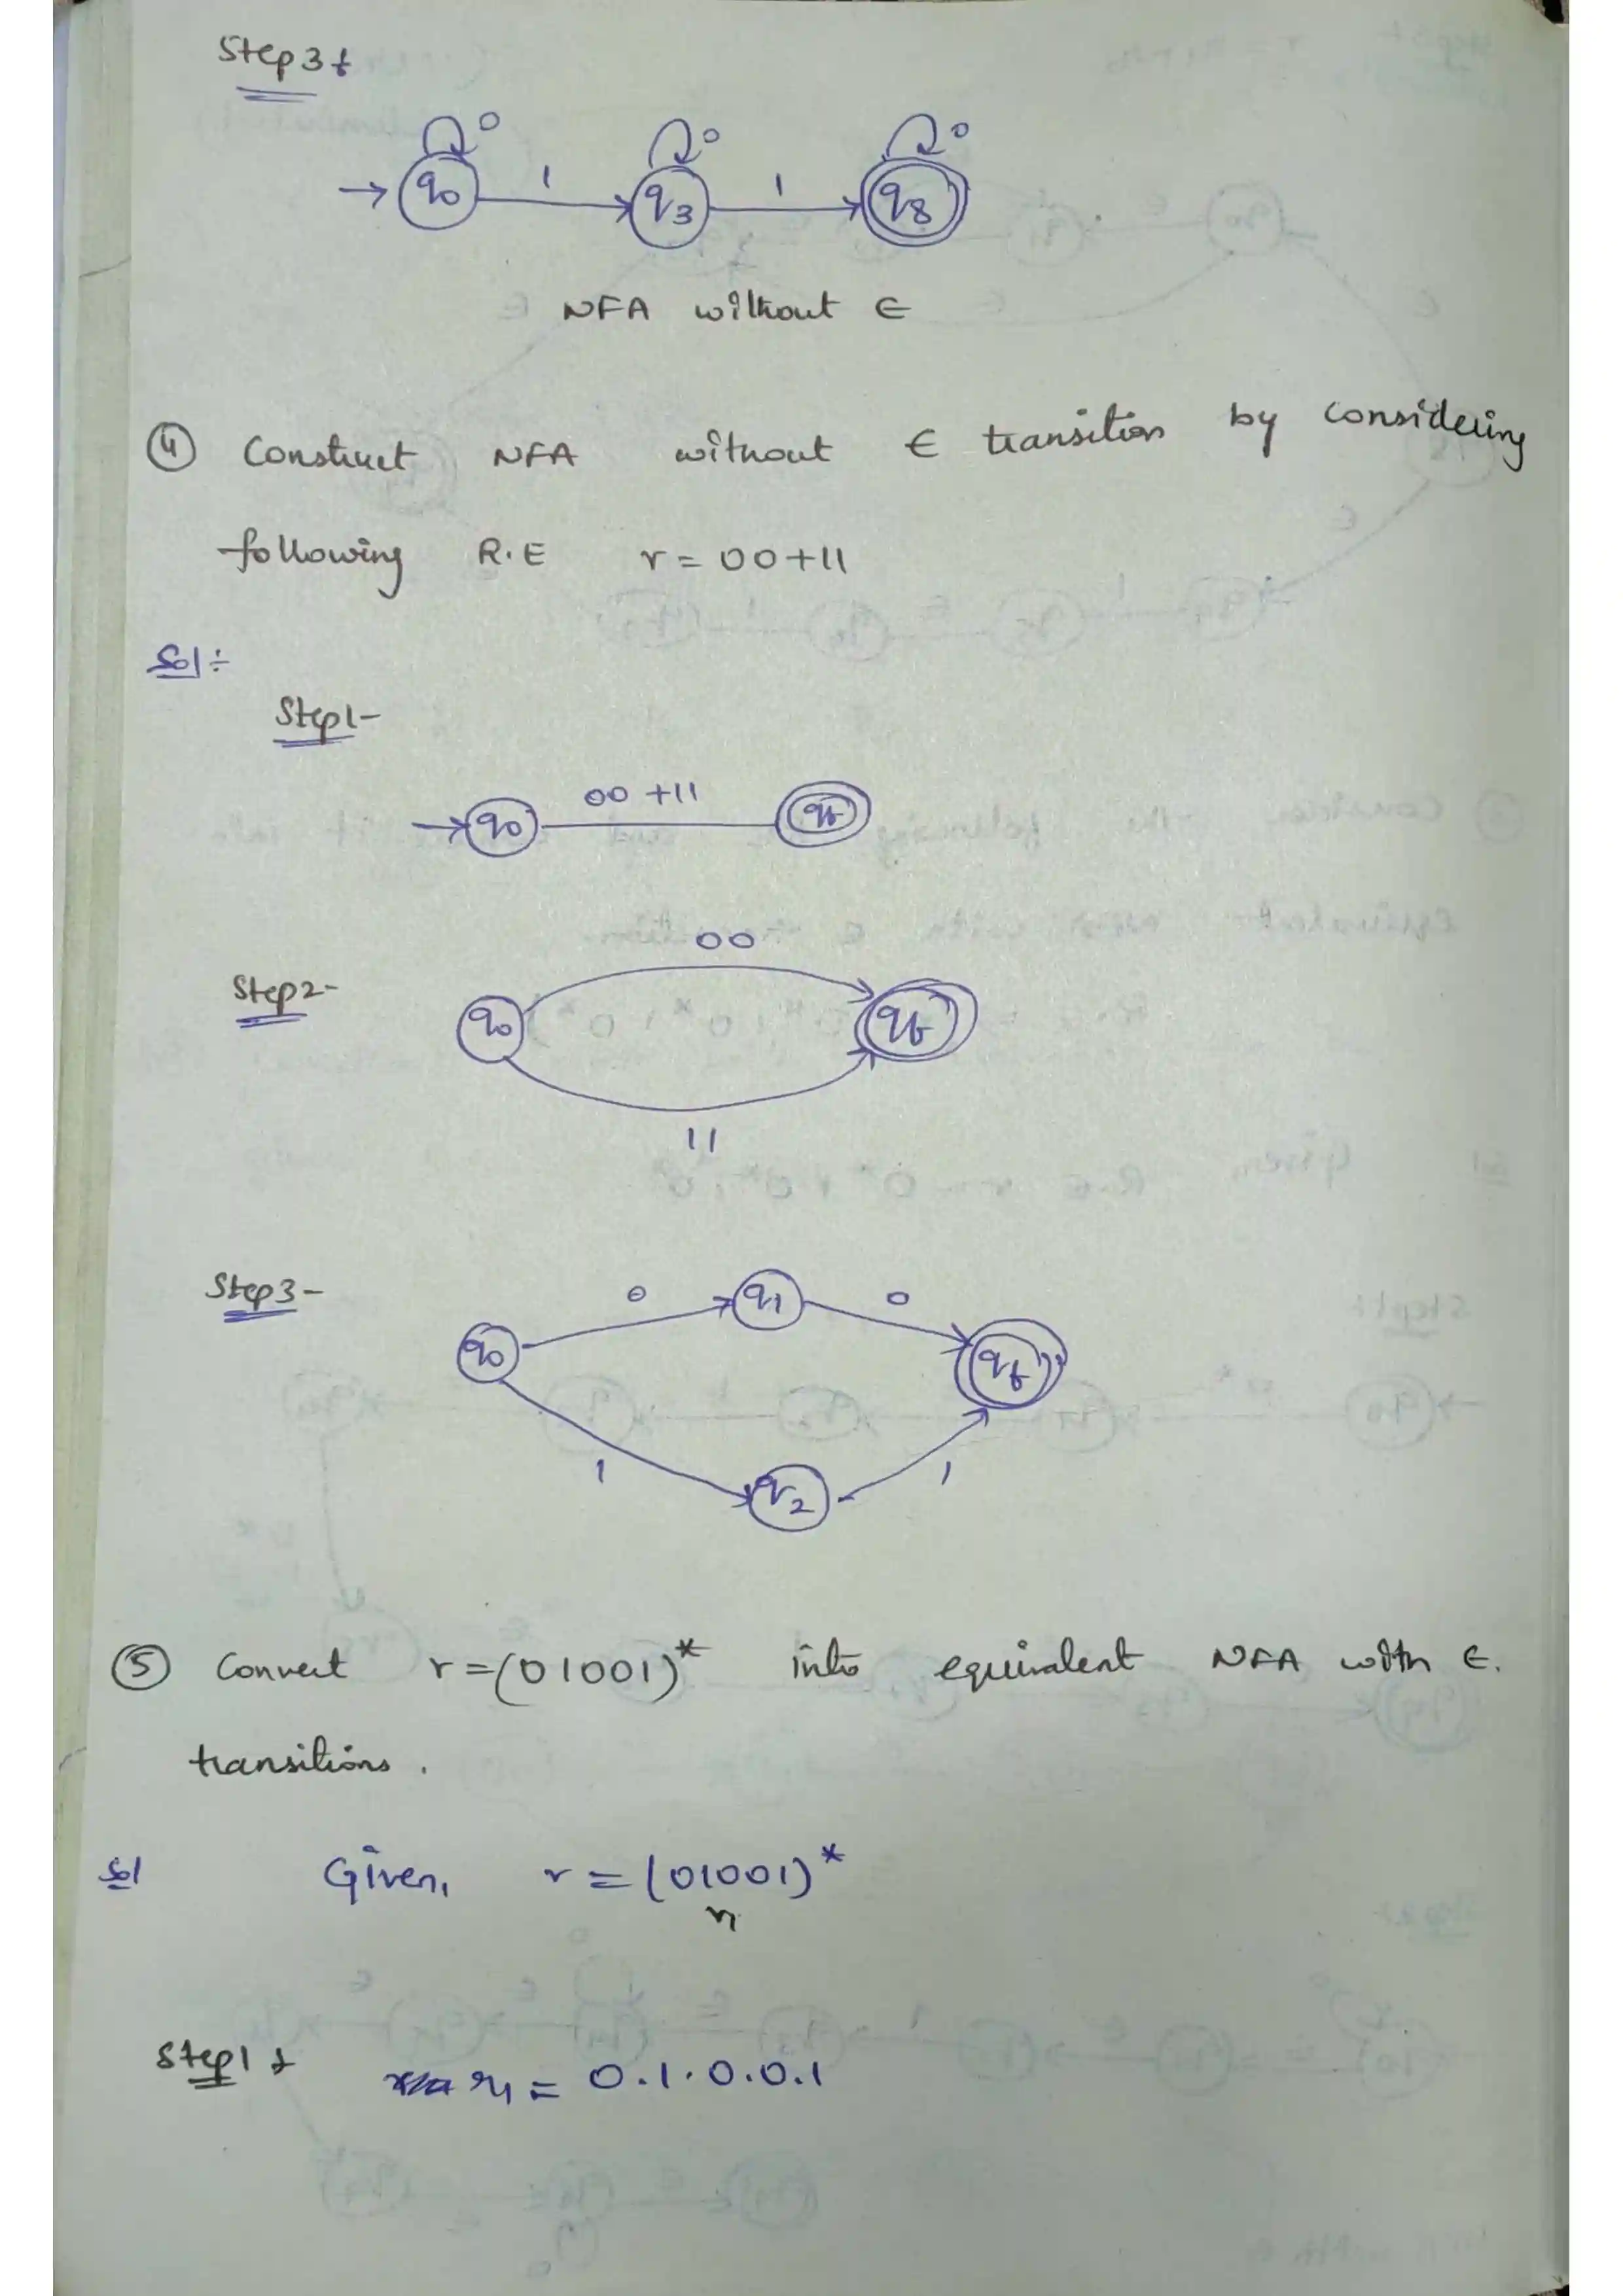 Step 3 :
0 0 0
q0 1 q3 1 q8
NFA without ∈
④ Construct NFA without ∈ transition by considering
following R.E r = 00+11
Sol :
Step1-
q0 00 +11 qf
00
Step2- q0 qf
11
Step3- 0 q1 0
q0 qf
1 q2 1
⑤ Convert r=(01001)* into equivalent NFA with ∈.
transitions.
Sol Given, r = (01001)*
r1
Step1 : r1 = 0.1.0.0.1